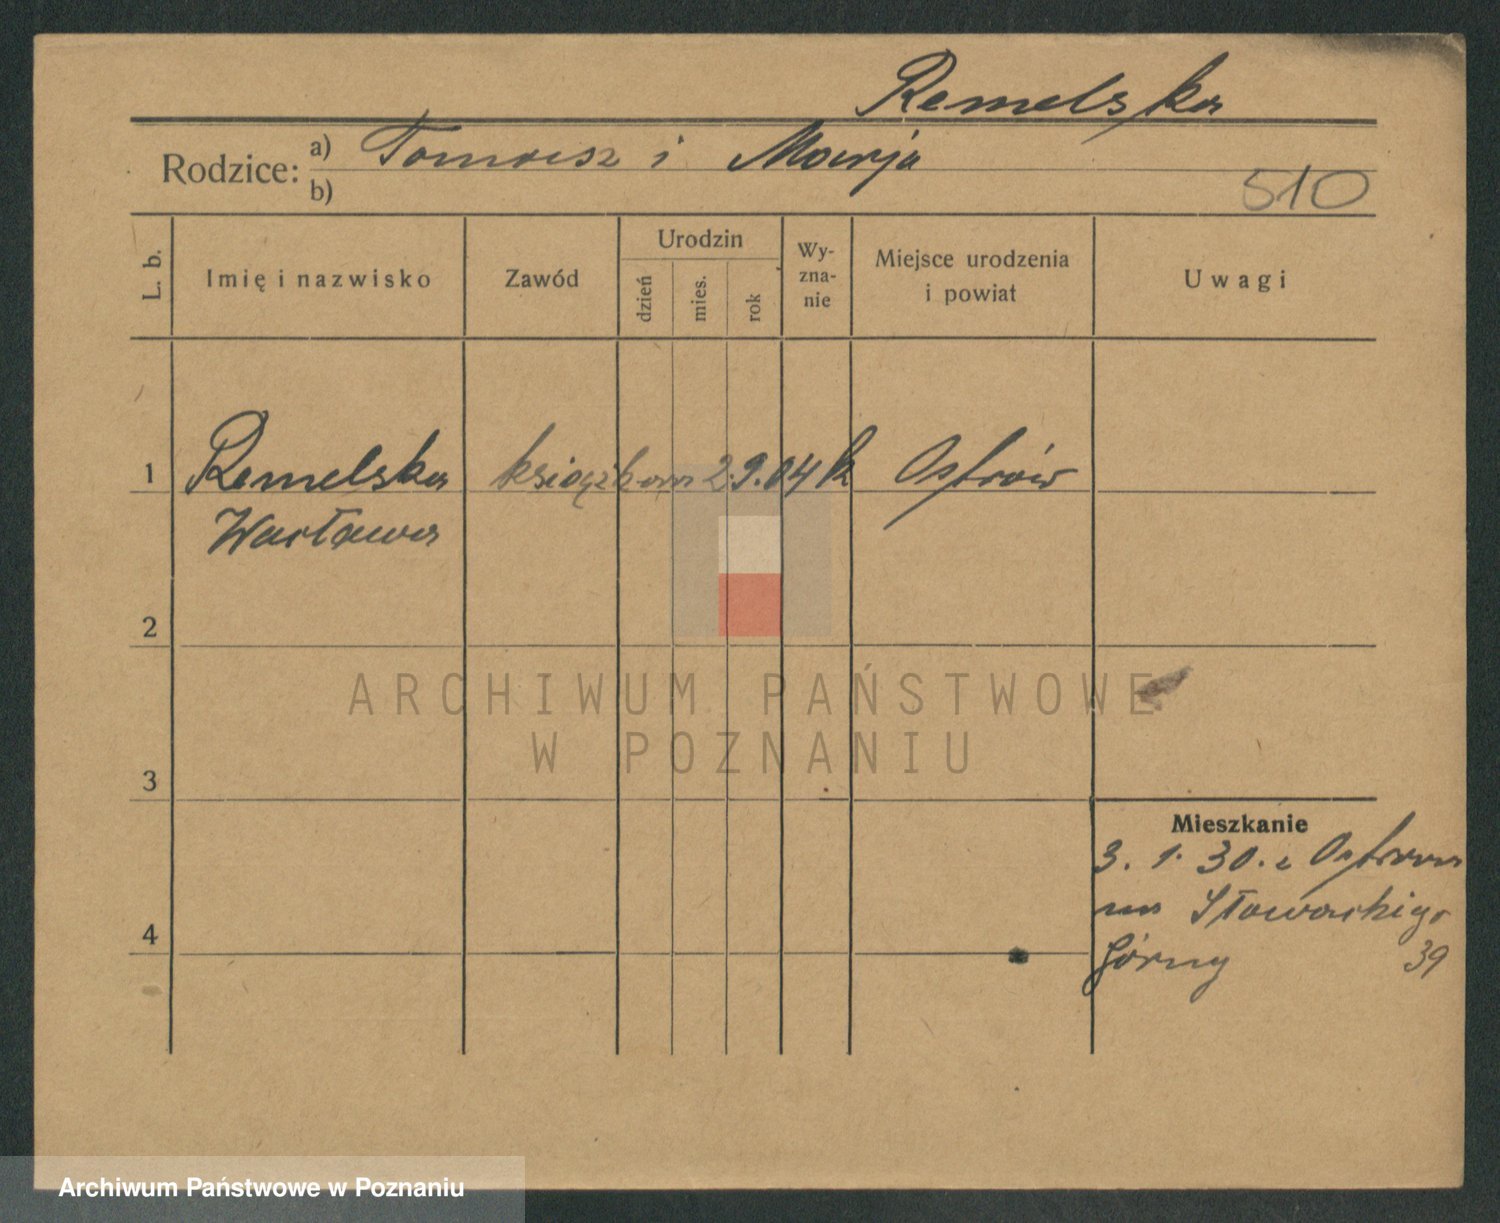 Remelska
Rodzice: a) Tomasz i Marja
b)
510
L. b. Imię i nazwisko Zawód Urodzin dzień mies. rok Wy-zna-nie Miejsce urodzenia i powiat Uwagi
1 Remelska książkow 2.9.04 k Ostrów
Wacława
2
ARCHIWUM PAŃSTWOWE
W POZNANIU
3
Mieszkanie
3. 1. 30. z Ostrowa
na Słowackiego
4
Górny 39
Archiwum Państwowe w Poznaniu